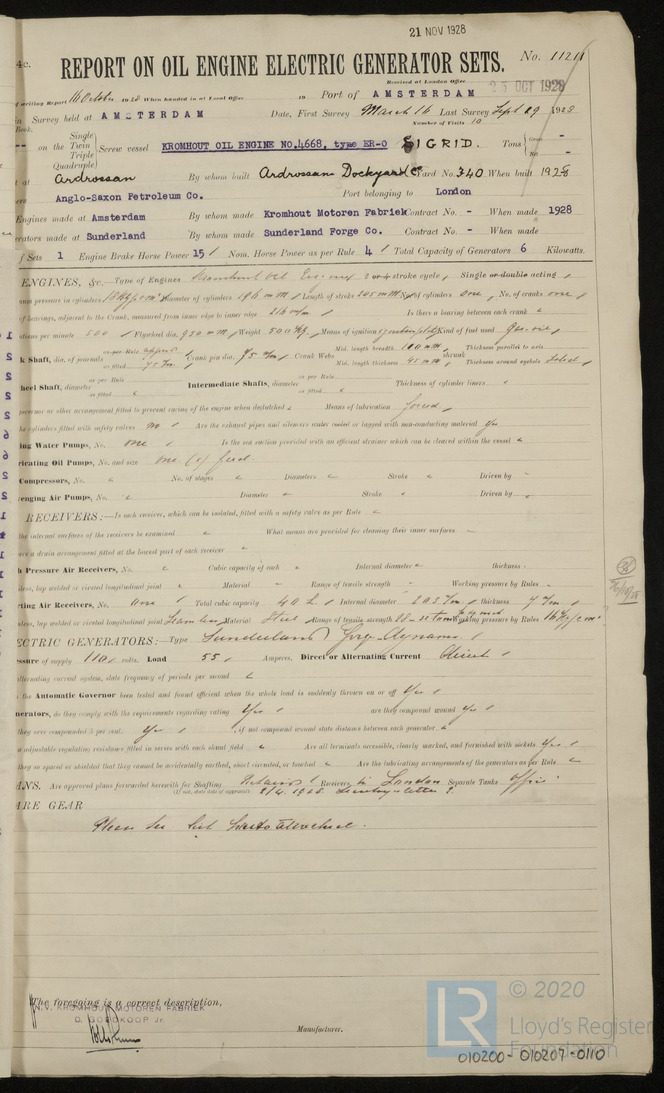 21 NOV 1928
4c. REPORT ON OIL ENGINE ELECTRIC GENERATOR SETS. No. 11211
Received at London Office 25 OCT 1928
of writing Report 16 October 1928 When handed in at Local Office 19 Port of AMSTERDAM
in Survey held at AMSTERDAM Date, First Survey March 16 Last Survey Sept 29 1928
Book. Number of Visits 10
-- on the Single Twin Triple Quadruple Screw vessel KROMHOUT OIL ENGINE NO.4668, type ER-0 SIGRID. Tons Gross - Net -
t at Ardrossan By whom built Ardrossan Dockyard Co. Yard No. 340 When built 1928
Anglo-Saxon Petroleum Co. Port belonging to London
Engines made at Amsterdam By whom made Kromhout Motoren Fabriek Contract No. - When made 1928
erators made at Sunderland By whom made Sunderland Forge Co. Contract No. - When made
f Sets 1 Engine Brake Horse Power 15 Nom. Horse Power as per Rule 4 Total Capacity of Generators 6 Kilowatts.
ENGINES, &c.—Type of Engines Kromhout Oil Engines 2 or 4 stroke cycle Single or double acting
mum pressure in cylinders Diameter of cylinders 196 mm Length of stroke No. of cylinders one No. of cranks one
of bearings, adjacent to the Crank, measured from inner edge to inner edge 216 mm Is there a bearing between each crank
utions per minute 500 Flywheel dia. 930 mm Weight 500 Kg. Means of ignition Kind of fuel used Gas-oil
k Shaft, dia. of journals as per Rule approved as fitted 75 mm Crank pin dia. 75 mm Crank Webs Mid. length breadth 100 mm Mid. length thickness 45 mm shrunk Thickness parallel to axis Thickness around eyehole Solid
heel Shaft, diameter as per Rule as fitted Intermediate Shafts, diameter as per Rule as fitted Thickness of cylinder liners
governor or other arrangement fitted to prevent racing of the engine when declutched Means of lubrication forced
he cylinders fitted with safety valves no Are the exhaust pipes and silencers water cooled or lagged with non-conducting material Yes
ling Water Pumps, No. one Is the sea suction provided with an efficient strainer which can be cleared within the vessel
ricating Oil Pumps, No. and size one
Compressors, No. No. of stages Diameters Stroke Driven by -
enging Air Pumps, No. Diameter Stroke Driven by
RECEIVERS:—Is each receiver, which can be isolated, fitted with a safety valve as per Rule
the internal surfaces of the receivers be examined What means are provided for cleaning their inner surfaces
ere a drain arrangement fitted at the lowest part of each receiver
h Pressure Air Receivers, No. Cubic capacity of each Internal diameter thickness -
less, lap welded or riveted longitudinal joint Material Range of tensile strength Working pressure by Rules -
rting Air Receivers, No. one Total cubic capacity 40 L. Internal diameter 203 mm thickness 7 mm
less, lap welded or riveted longitudinal joint Seamless Material Steel Range of tensile strength Working pressure by Rules
ECTRIC GENERATORS:—Type Sunderland Forge Dynamo.
ssure of supply 110 volts. Load 55 Amperes. Direct or Alternating Current Direct
alternating current system, state frequency of periods per second
the Automatic Governor been tested and found efficient when the whole load is suddenly thrown on or off Yes
nerators, do they comply with the requirements regarding rating Yes are they compound wound Yes
they over compounded 5 per cent. Yes if not compound wound state distance between each generator
adjustable regulating resistance fitted in series with each shunt field Are all terminals accessible, clearly marked, and furnished with sockets Yes
they so spaced or shielded that they cannot be accidentally earthed, short circuited, or touched Are the lubricating arrangements of the generators as per Rule
ANS. Are approved plans forwarded herewith for Shafting Retained Receivers in London Separate Tanks office
(If not, state date of approval) 2/4. 1928 letter
ARE GEAR
Please see list attached.
The foregoing is a correct description,
N.V. KROMHOUT MOTOREN FABRIEK
D. GOEDKOOP Jr.
Manufacturer.
LR © 2020
Lloyd's Register
Foundation
010200-010207-0110